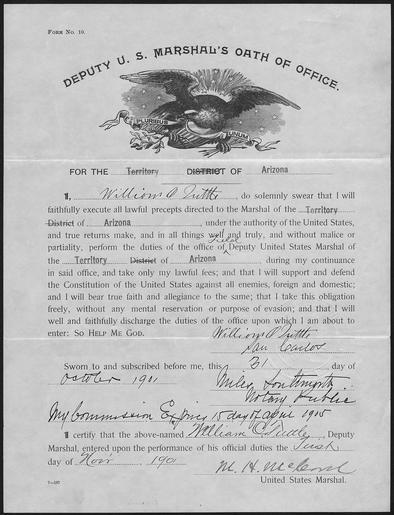 FORM No. 10.
DEPUTY U. S. MARSHAL'S OATH OF OFFICE.
PLURIBUS UNUM
FOR THE Territory DISTRICT OF Arizona
I, William A Tuttle, do solemnly swear that I will
faithfully execute all lawful precepts directed to the Marshal of the Territory
District of Arizona, under the authority of the United States,
and true returns make, and in all things well and truly, and without malice or
partiality, perform the duties of the office of Field Deputy United States Marshal of
the Territory District of Arizona during my continuance
in said office, and take only my lawful fees; and that I will support and defend
the Constitution of the United States against all enemies, foreign and domestic;
and I will bear true faith and allegiance to the same; that I take this obligation
freely, without any mental reservation or purpose of evasion; and that I will
well and faithfully discharge the duties of the office upon which I am about to
enter: SO HELP ME GOD. William A Tuttle
San Carlos
Sworn to and subscribed before me, this 31 day of
October 1901 Miles
Notary Public
My Commission Expires 15 day of April 1905
I certify that the above-named William Tuttle, Deputy
Marshal, entered upon the performance of his official duties the first
day of Nov 1901
M. H. McCord
United States Marshal.